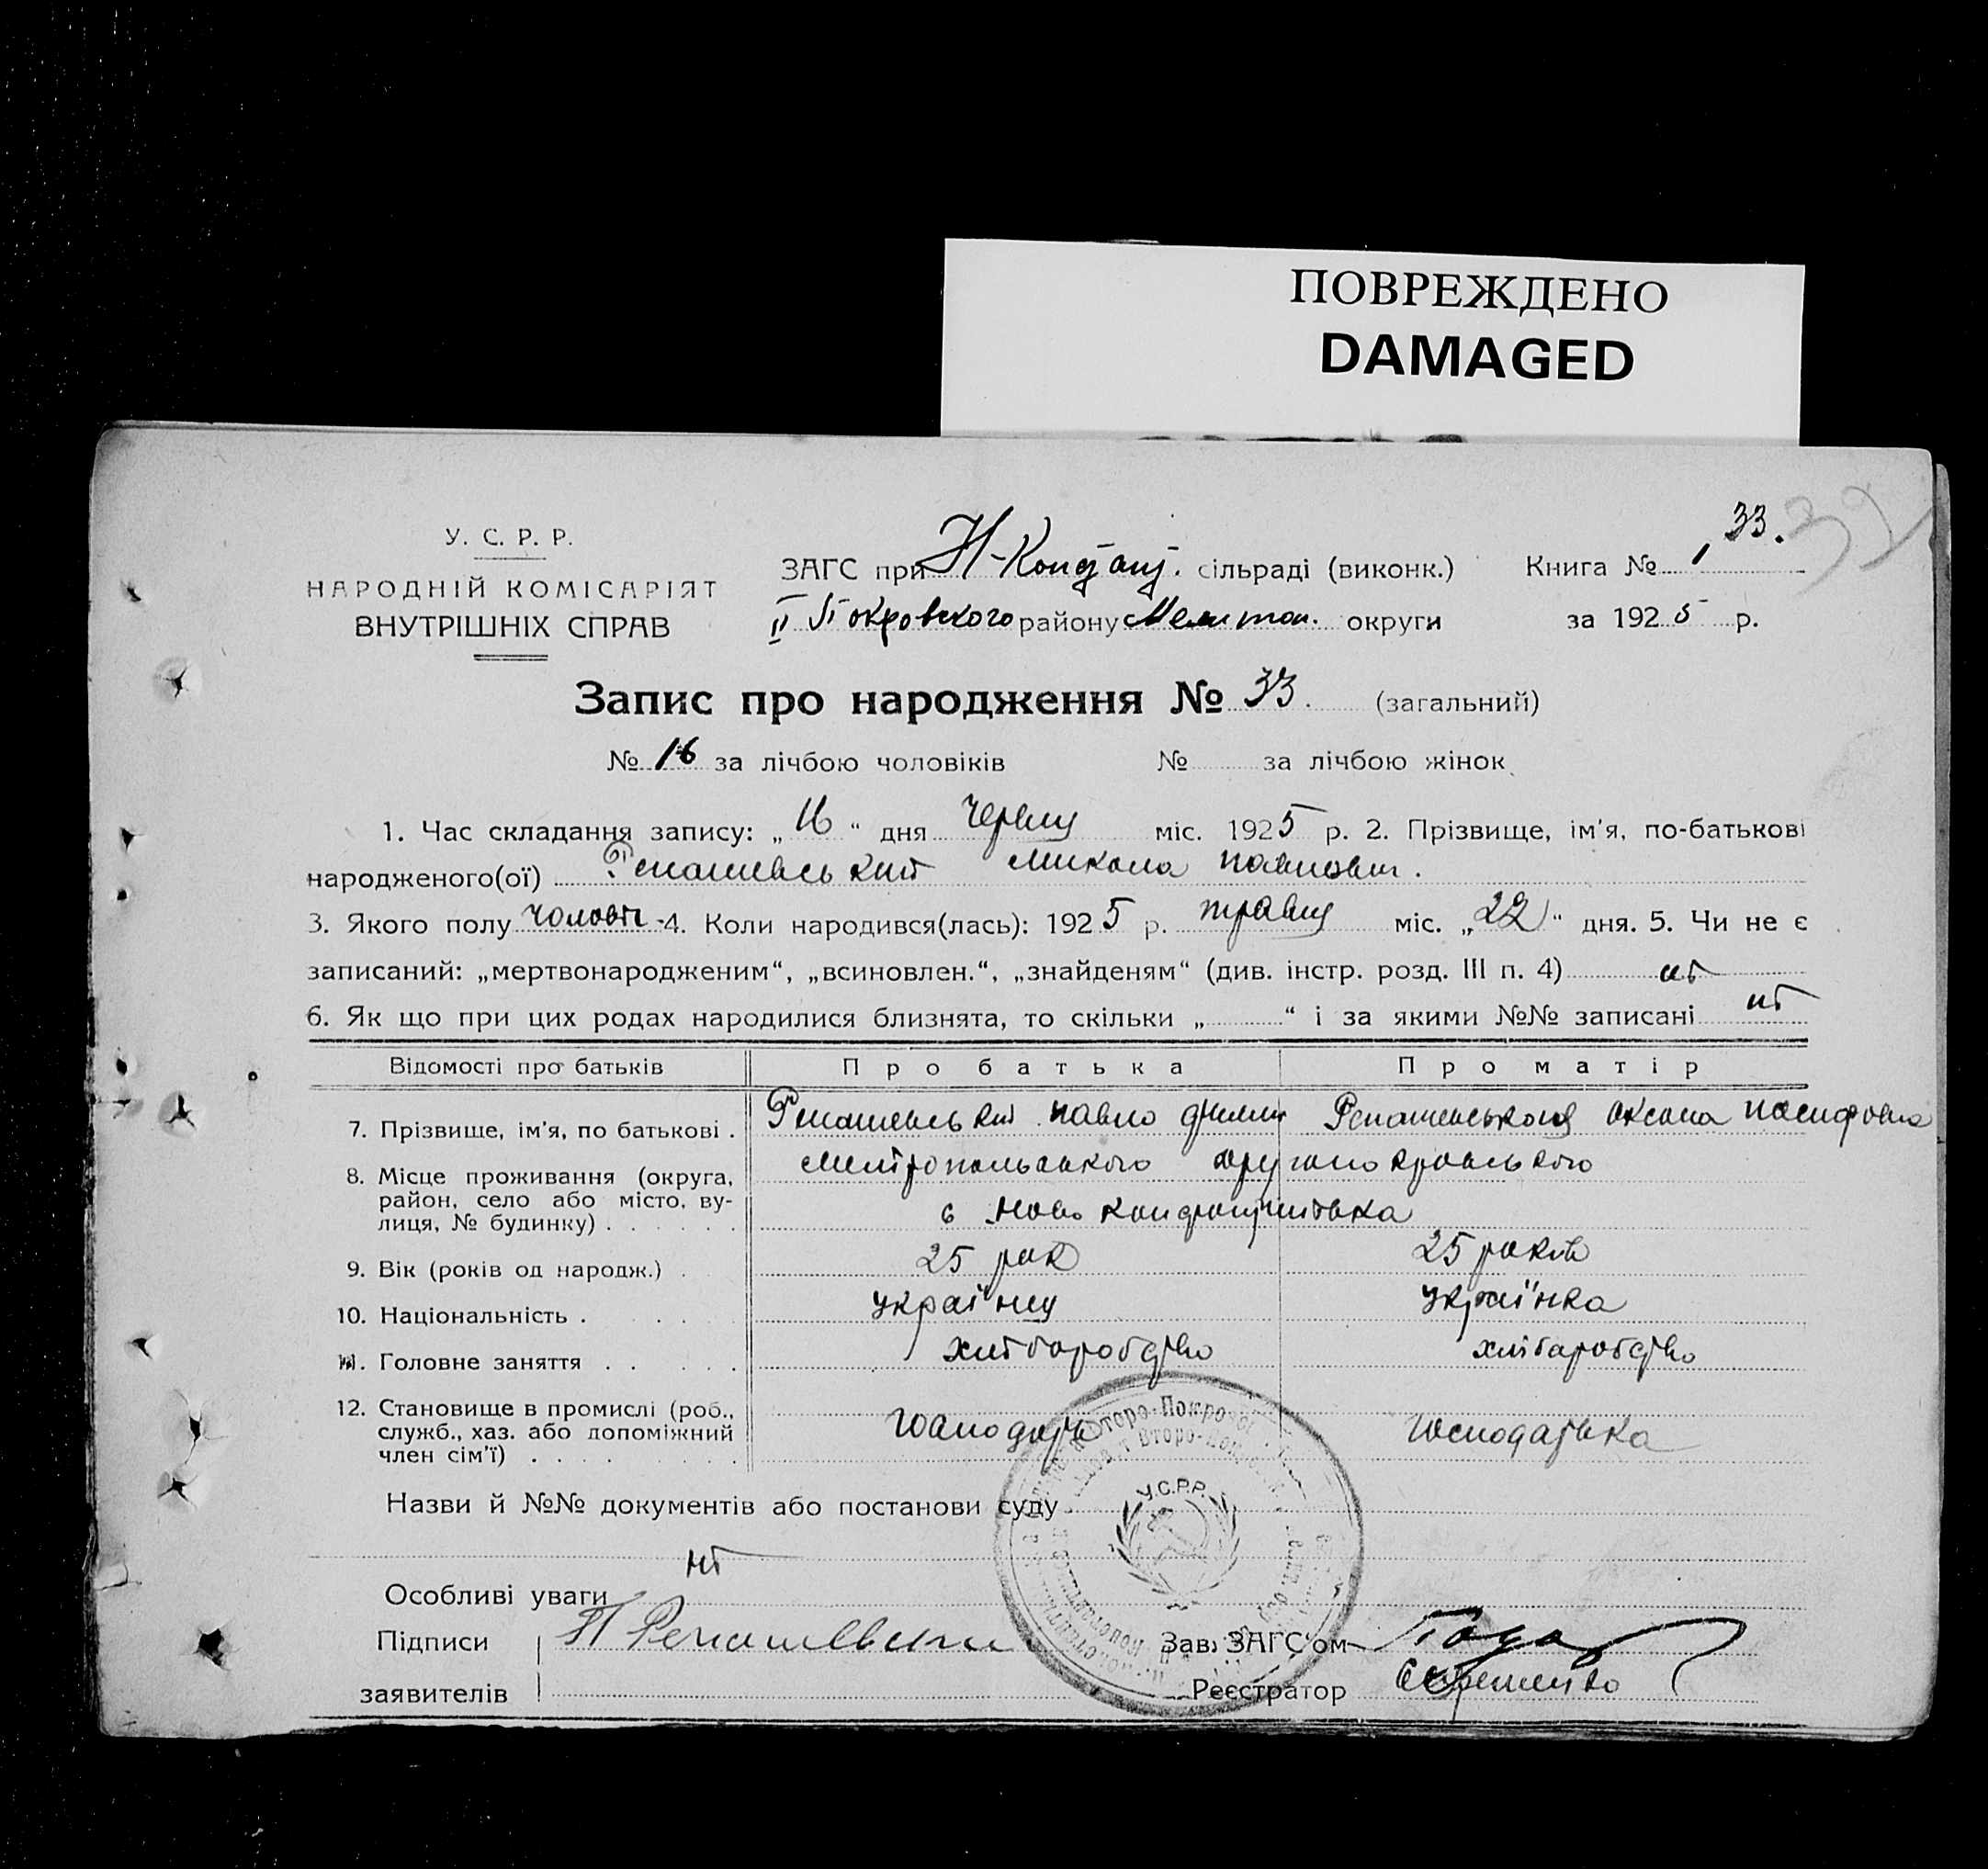 ПОВРЕЖДЕНО
DAMAGED
33. 32
У. С. Р. Р.
НАРОДНІЙ КОМІСАРІЯТ
ВНУТРІШНІХ СПРАВ
ЗАГС при Н-Кондрат. сільраді (виконк.) Книга № 1
ІІ Покровского району Мелитоп. округи за 1925 р.
Запис про народження № 33. (загальний)
№ 16 за лічбою чоловіків № за лічбою жінок
1. Час складання запису: „16“ дня червня міс. 1925 р. 2. Прізвище, ім'я, по-батькові
народженого(ої) Репашевський Микола Павлович.
3. Якого полу 4. Коли народився(лась): 1925 р. травня міс. „22“ дня. 5. Чи не є
записаний: „мертвонародженим“, „всиновлен.“, „знайденям“ (див. інстр. розд. III п. 4) ні
6. Як що при цих родах народилися близнята, то скільки „ “ і за якими №№ записані ні
Відомості про батьків Про батька Про матір
7. Прізвище, ім'я, по батькові . Репашевський Павло Репашевськоя Оксана
8. Місце проживання (округа,
район, село або місто, ву-
лиця, № будинку) с Ново Кондратівка
9. Вік (років од народж.) . 25 рок 25 років
10. Національність . українец українка
11. Головне заняття . . хліборобство хліборобство
12. Становище в промислі (роб.,
служб., хаз. або допоміжний
член сім'ї) . . . . господарь господарька
Назви й №№ документів або постанови суду
У.С.Р.Р.
Особливі уваги ні
Підписи П Репашевский Зав. ЗАГС'ом
заявителів Реєстратор